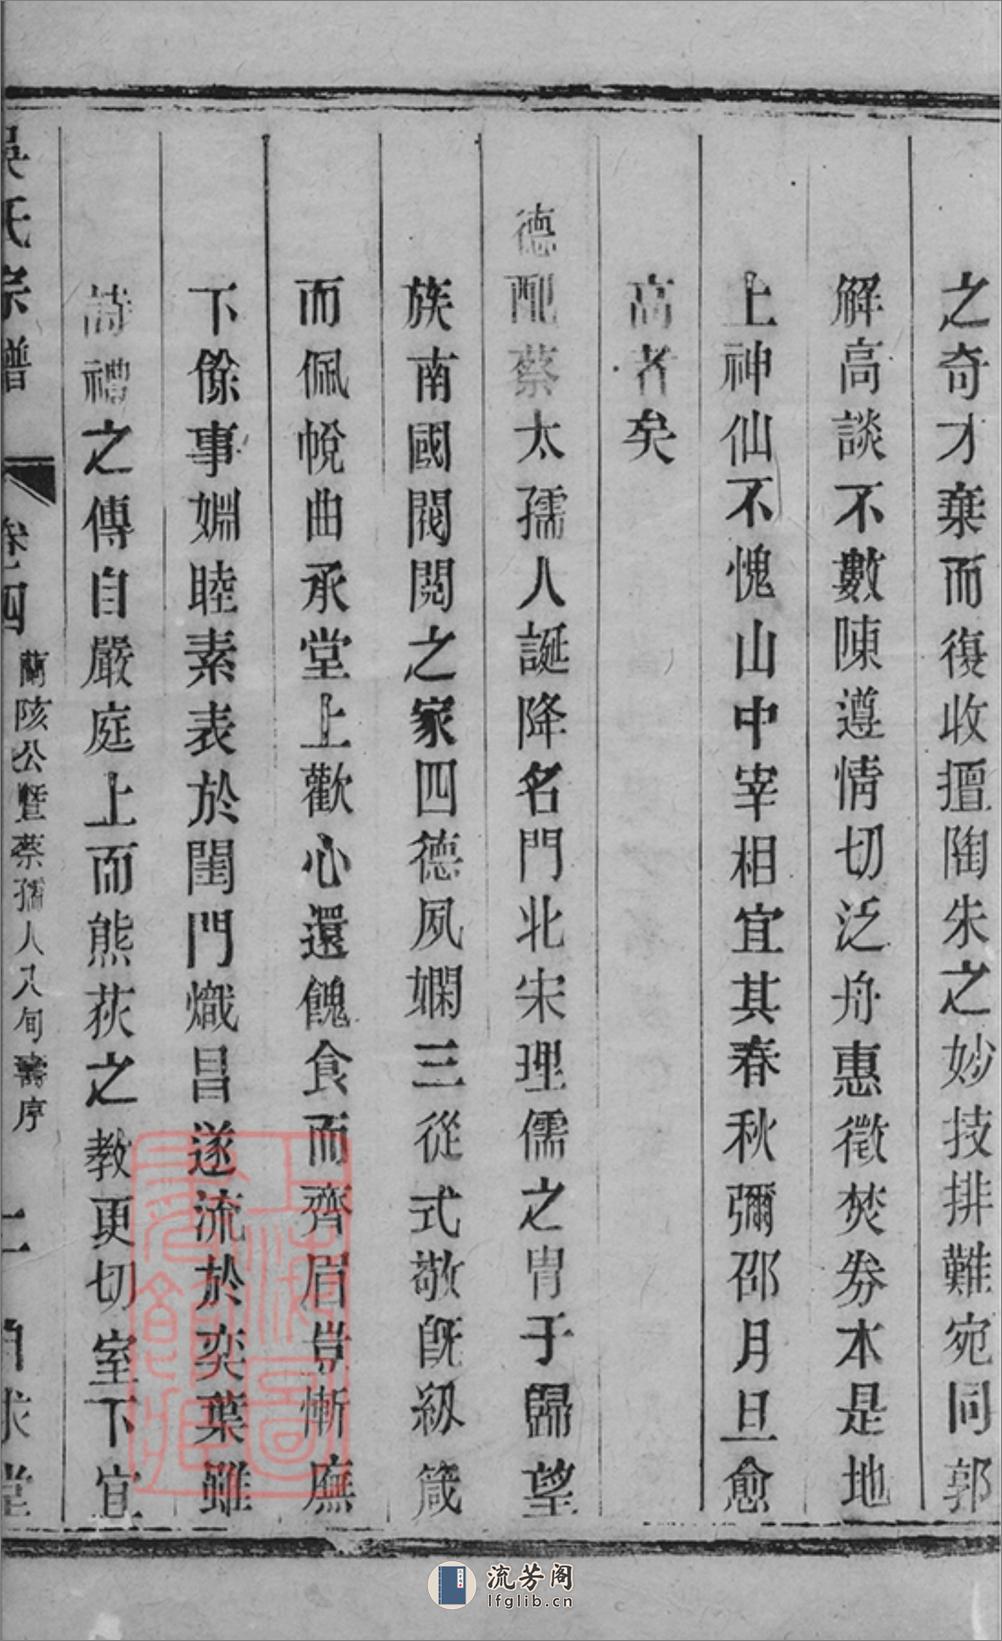 之奇才棄而復收擅陶朱之妙技排難宛同郭
解高談不數陳遵情切泛舟惠徵焚券本是地
上神仙不愧山中宰相宜其春秋彌邵月旦愈
高者矣
德配蔡太孺人誕降名門北宋理儒之冑于歸望
族南國閥閱之家四德夙嫻三從式敬旣紉箴
而佩帨曲承堂上歡心還餽食而齊眉豈慚廡
下餘事婣睦素表於閨門熾昌遂流於奕葉雖
詩禮之傳自嚴庭上而熊荻之教更切室下宜
吳氏宗譜
卷四
蘭陔公暨蔡孺人八旬壽序
二
堂
上海圖書館藏
流芳阁
lfglib.cn